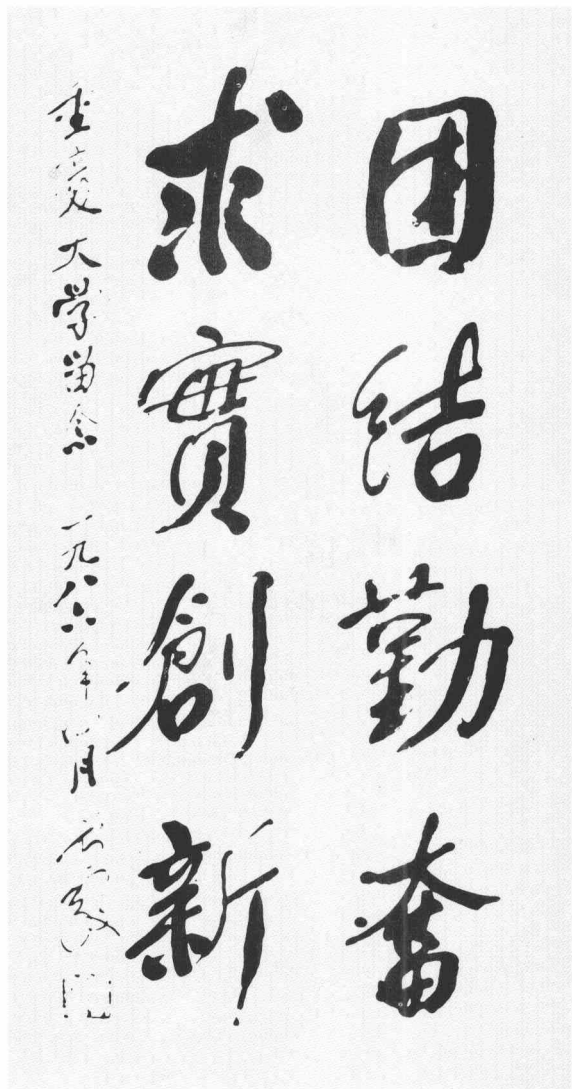 团结勤奮
求實創新
重慶大學留念 一九八六年 月